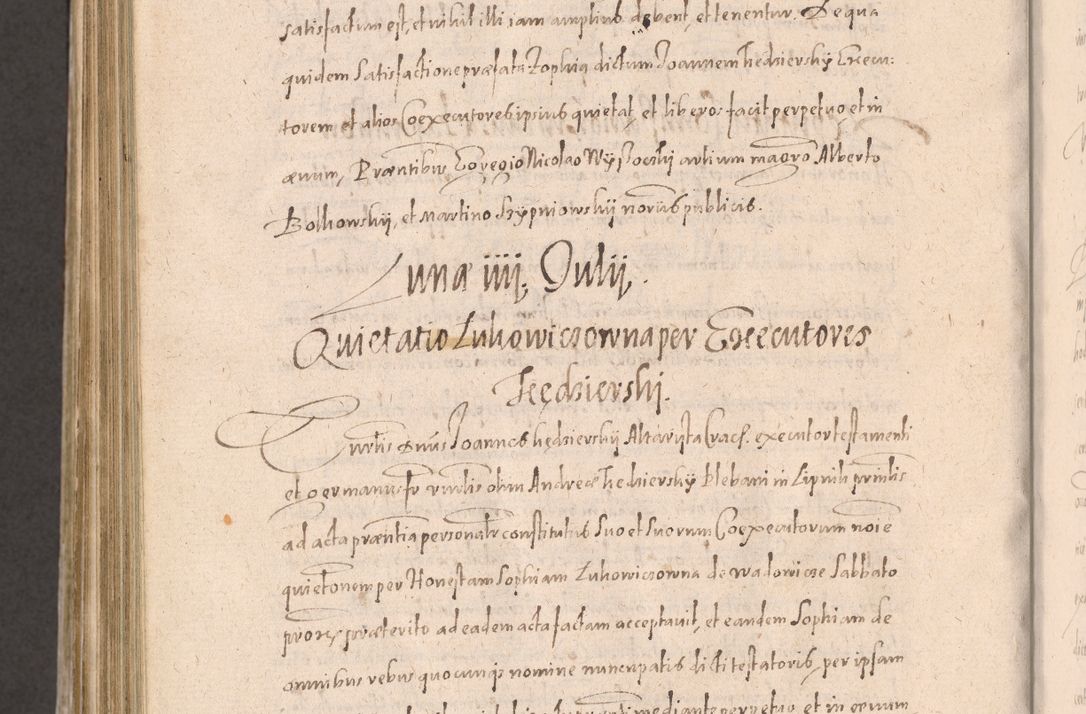 satisfactum est, et nihil illi iam amplius debent, et tenentur. De qua
quidem satisfactione præfata Zophia dictum Joannem Kędzierskÿ Execu:
torem et alios Coexecutores ipsius quietat, et liberos facit perpetuo et in
ævum, Præntibus Egregio Nicolao artium magro Alberto
Bolkowskÿ, et Martino publicis.
Luna iiij. Julij.
Quietatio Lukowiczowna per Executores
Kędzierskj.
Joannes Kędzierskÿ Altarista Crac. executor testamenti
et germanus olim Andreæ Kedzierskÿ Plebani in Lipnik
ad acta præntia personalr constitutus suo et suorum Coexecutorum noie
quietonem per Honestam Sophiam Lukowiczowna de Wadowicze Sabbato
præterito ad eadem acta factam acceptavit, et eandem Sophiam de
omnibus rebus quocumqs nomine nuncupatis dicti testatoris, per ipsam
mediante perpetuo et in ævum